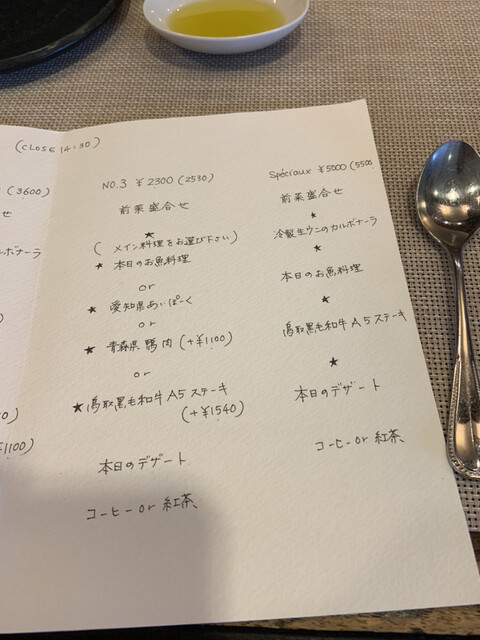 (CLOSE 14:30)
(3600)
せ
ルボナーラ
)
0)
¥1100)
NO.3 ¥2300 (2530)
前菜盛合せ
★
( メイン料理をお選び下さい )
★ 本日のお魚料理
or
★ 愛知県あいぽーく
or
★ 青森県 鴨肉 (+¥1100)
or
★ 鳥取黒毛和牛 A5ステーキ
(+¥1540)
本日のデザート
コーヒー or 紅茶
Spéciaux ¥5000 (5500
前菜盛合せ
★
冷製生ウニのカルボナーラ
★
本日のお魚料理
★
鳥取黒毛和牛 A5ステーキ
★
本日のデザート
コーヒー or 紅茶